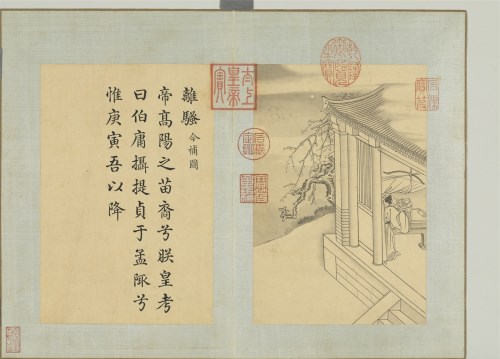 離騷 今補圖
帝高陽之苗裔兮朕皇考
曰伯庸攝提貞于孟陬兮
惟庚寅吾以降
太上皇帝之寶